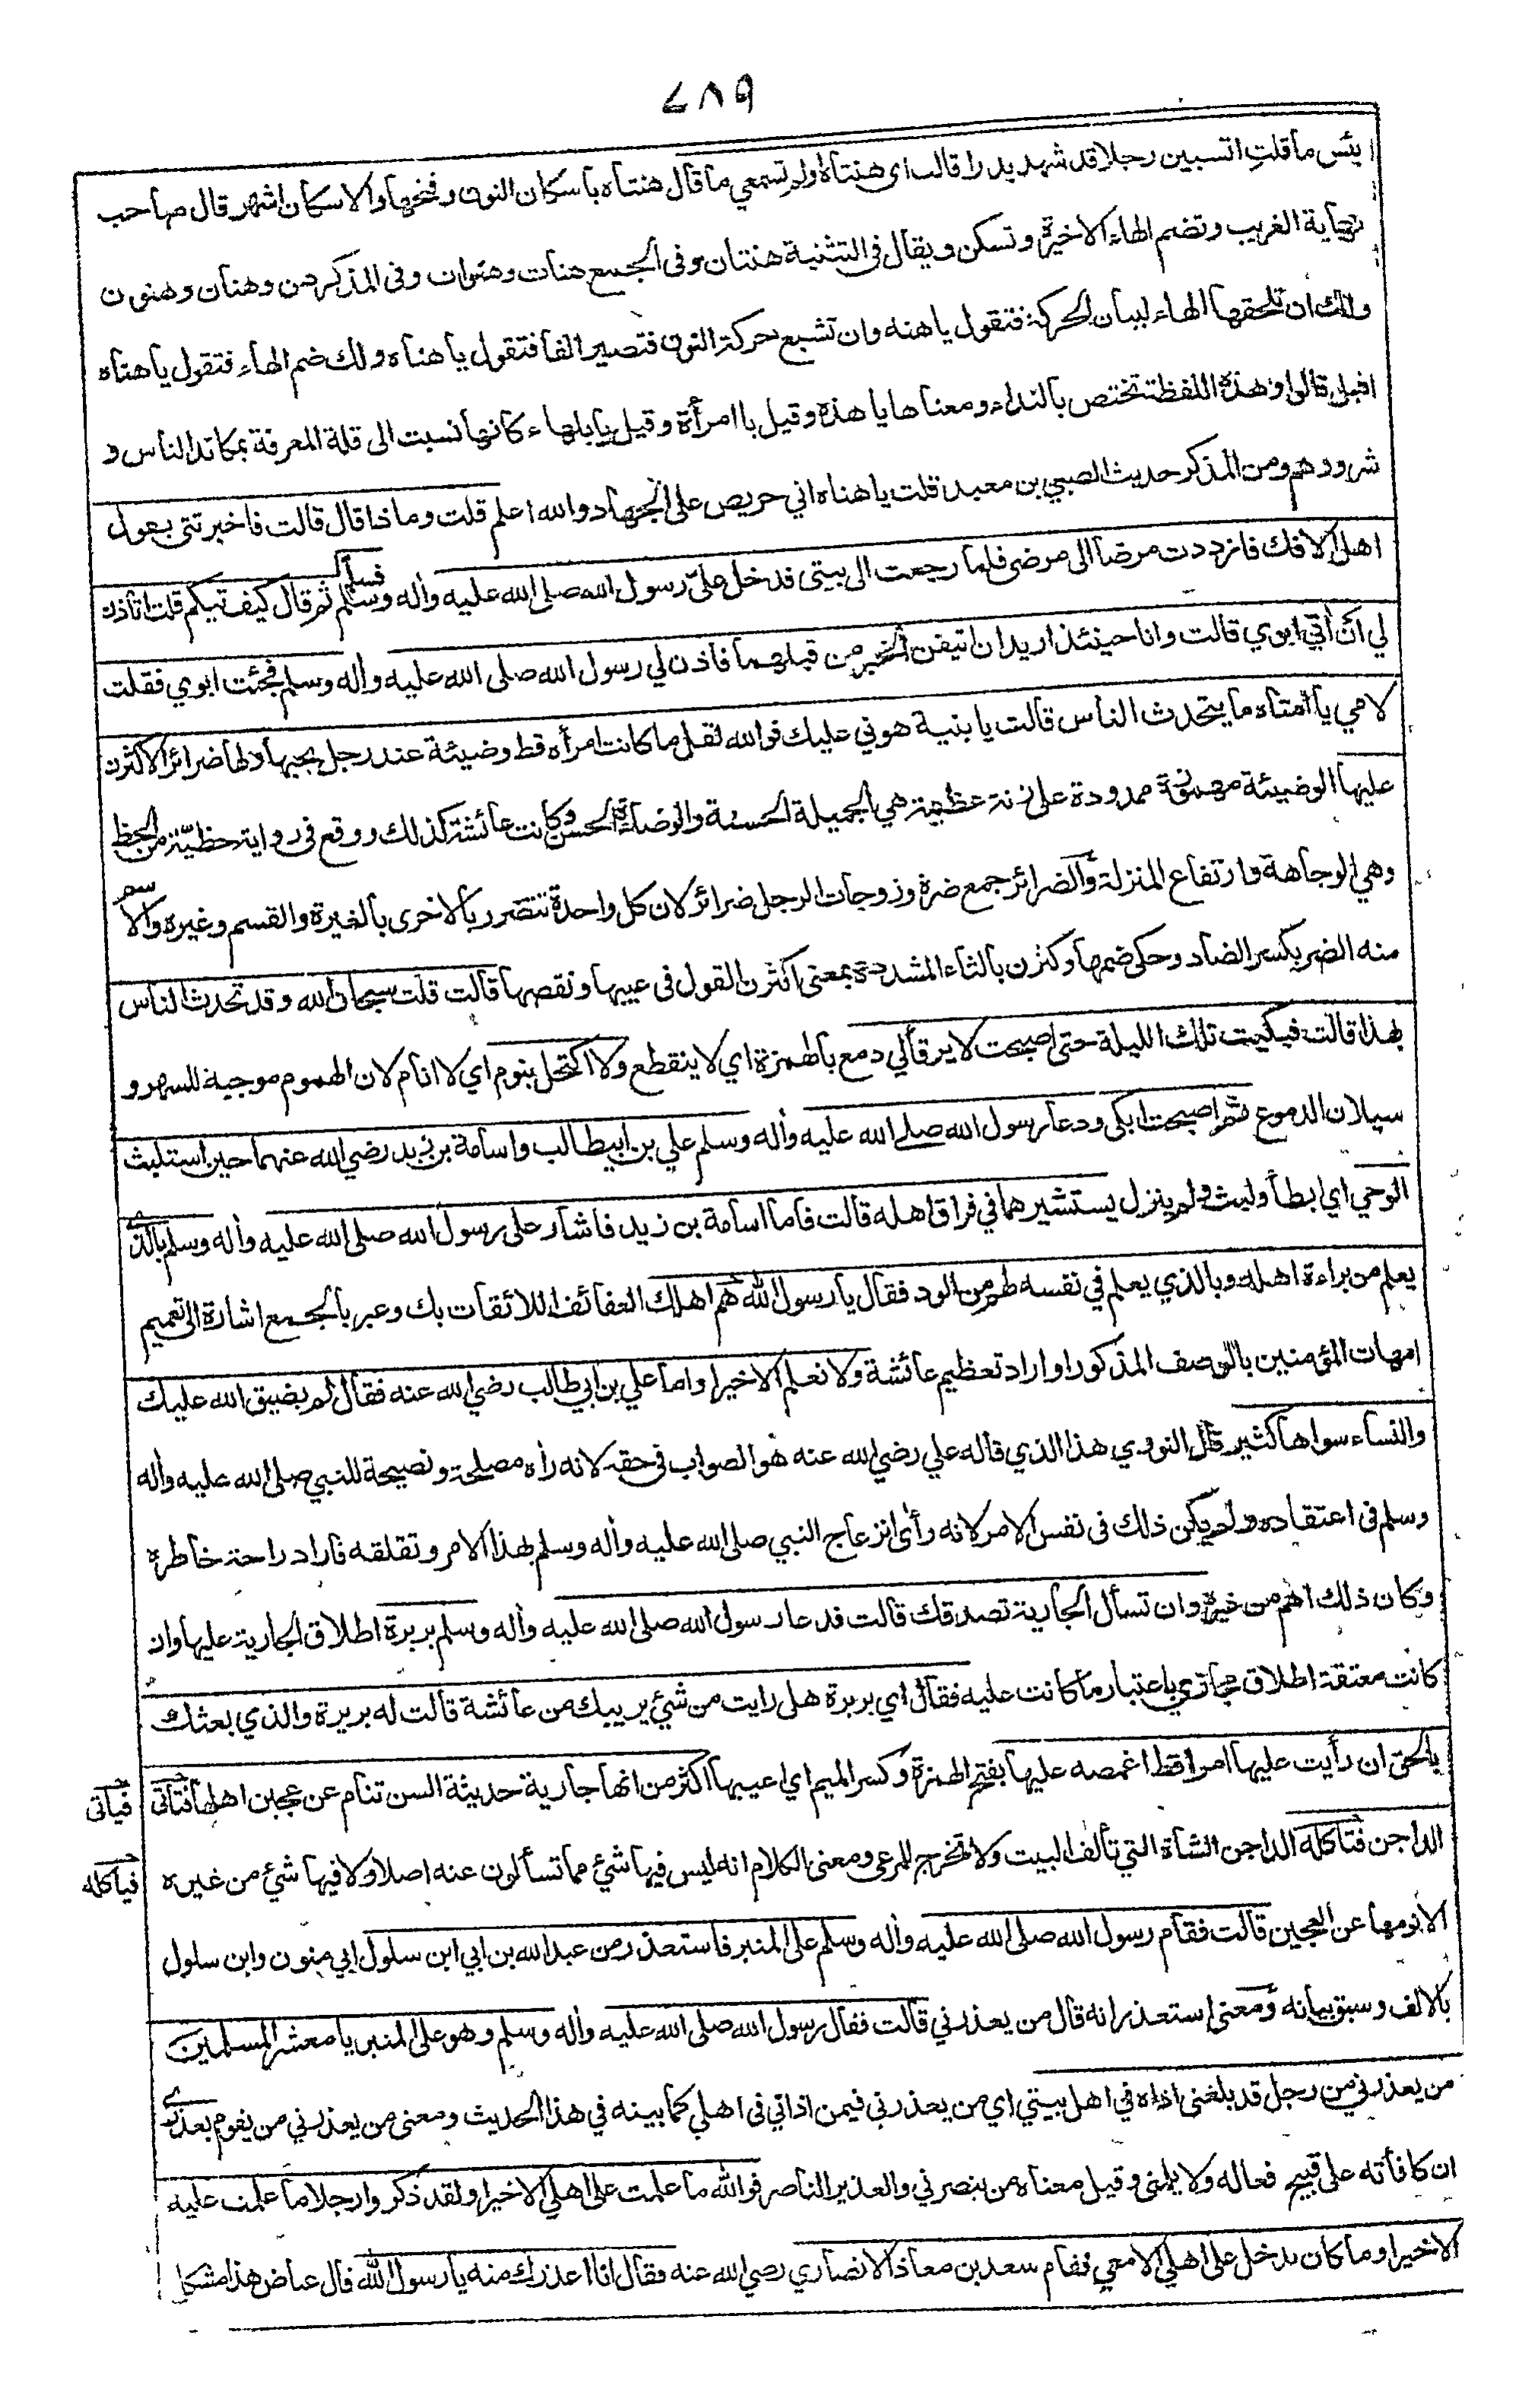 ٧٨٩
بئس ما قلت اتسبين رجلا قد شهد بدرا قالت اى هنتاه اولم تسمعي ما قال هنتاه باسكان النون وفتحها والاسكان اشهر قال صاحب
نهاية الغريب وتضم الهاء الاخيرة وتسكن ويقال فى التثنية هنتان وفى الجمع هنات وهنوات وفى المذكر هن وهنان وهنون
ولك ان تلحقها الهاء لبيان الحركة فتقول يا هنه وان تشبع حركة النون فتصير الفا فتقول يا هناه ولك ضم الهاء فتقول يا هناه
اقبل قالوا وهذه اللفظة تختص بالنداء ومعناها يا هذه وقيل يا امرأة وقيل يا بلهاء كانها نسبت الى قلة المعرفة بمكائد الناس و
شرورهم ومن المذكر حديث الصبي بن معبد قلت يا هناه اني حريص على الجهاد والله اعلم قلت وماذا قال قالت فاخبرتنى بقول
اهل الافك فازددت مرضا الى مرضى فلما رجعت الى بيتى فدخل عليّ رسول الله صلى الله عليه واله وسلم فسلم ثم قال كيف تيكم قلت اتأذن
لي ان آتي ابوي قالت وانا حينئذ اريد ان اتيقن الخبر من قبلهما فاذن لي رسول الله صلى الله عليه واله وسلم فجئت ابوي فقلت
لامي يا امتاه ما يتحدث الناس قالت يا بنية هوني عليك فوالله لقل ما كانت امرأه قط وضيئة عند رجل يحبها ولها ضرائر الا كثرن
عليها الوضيئة مهموزة ممدودة على زنة عظيمة هي الجميلة الحسنة والوضاءة الحسن وكانت عائشة كذلك ووقع فى رواية حظيّة من الحظ
وهي الوجاهة وارتفاع المنزلة والضرائر جمع ضرة وزوجات الرجل ضرائر لان كل واحدة تتضرر بالاخرى بالغيرة والقسم وغيره والاسم
منه الضر بكسر الضاد وحكى ضمها وكثرن بالثاء المشددة بمعنى اكثرن القول فى عيبها ونقصها قالت قلت سبحان الله وقد تحدث الناس
بهذا قالت فبكيت تلك الليلة حتى اصبحت لا يرقألي دمع بالهمزة اي لا ينقطع ولا اكتحل بنوم اي لا انام لان الهموم موجبة للسهر و
سيلان الدموع ثم اصبحت ابكى ودعا رسول الله صلے الله عليه واله وسلم علي بن ابيطالب واسامة بن زيد رضي الله عنهما حين استلبث
الوحي اي ابطأ ولبث ولم ينزل يستشيرهما في فراق اهله قالت فاما اسامة بن زيد فاشار على رسول الله صلى الله عليه واله وسلم بالذي
يعلم من براءة اهله وبالذي يعلم في نفسه لهم من الود فقال يا رسول الله هم اهلك العفائف اللائقات بك وعبر بالجمع اشارة الى تعميم
امهات المؤمنين بالوصف المذكور او اراد تعظيم عائشة ولا نعلم الا خيرا واما علي بن ابي طالب رضي الله عنه فقال لم يضيق الله عليك
والنساء سواها كثير قال النووي هذا الذي قاله علي رضي الله عنه هو الصواب فى حقه لانه رأه مصلحة ونصيحة للنبي صلى الله عليه واله
وسلم فى اعتقاده ولم يكن ذلك فى نفس الامر لانه رأى انزعاج النبي صلى الله عليه واله وسلم بهذا الامر وتقلقه فاراد راحة خاطره
وكان ذلك اهم من غيره وان تسأل الجارية تصدقك قالت فدعا رسول الله صلى الله عليه واله وسلم بريرة اطلاق الجارية عليها وان
كانت معتقة اطلاق مجازي باعتبار ما كانت عليه فقال اي بريرة هل رايت من شئ يريبك من عائشة قالت له بريرة والذي بعثك
بالحق ان رأيت عليها امرا قط اغمصه عليها بفتح الهمزة وكسر الميم اي اعيبها اكثر من انها جارية حديثة السن تنام عن عجين اهلها فتأتى
فيأتى
الداجن فتأكله الداجن الشاة التي تألف البيت ولا تخرج للمرعى ومعنى الكلام انه ليس فيها شئ مما تسألون عنه اصلا ولا فيها شئ من غيره
فيأكله
الا نومها عن العجين قالت فقام رسول الله صلى الله عليه واله وسلم على المنبر فاستعذر من عبد الله بن ابي ابن سلول ابي منون وابن سلول
بالالف وسبق بيانه ومعنى استعذر انه قال من يعذرني قالت فقال رسول الله صلى الله عليه واله وسلم وهو على المنبر يا معشر المسلمين
من يعذرني من رجل قد بلغنى اذاه في اهل بيتي اي من يعذرني فيمن اذاني فى اهلي كما بينه في هذا الحديث ومعنى من يعذرني من يقوم بعذري
ان كافأته على قبيح فعاله ولا يلمنى وقيل معناه من ينصرني والعذير الناصر فوالله ما علمت على اهلي الا خيرا ولقد ذكروا رجلا ما علمت عليه
الا خيرا وما كان يدخل على اهلي الا معي فقام سعد بن معاذ الانصاري رضي الله عنه فقال انا اعذرك منه يا رسول الله قال عياض هذا مشكل